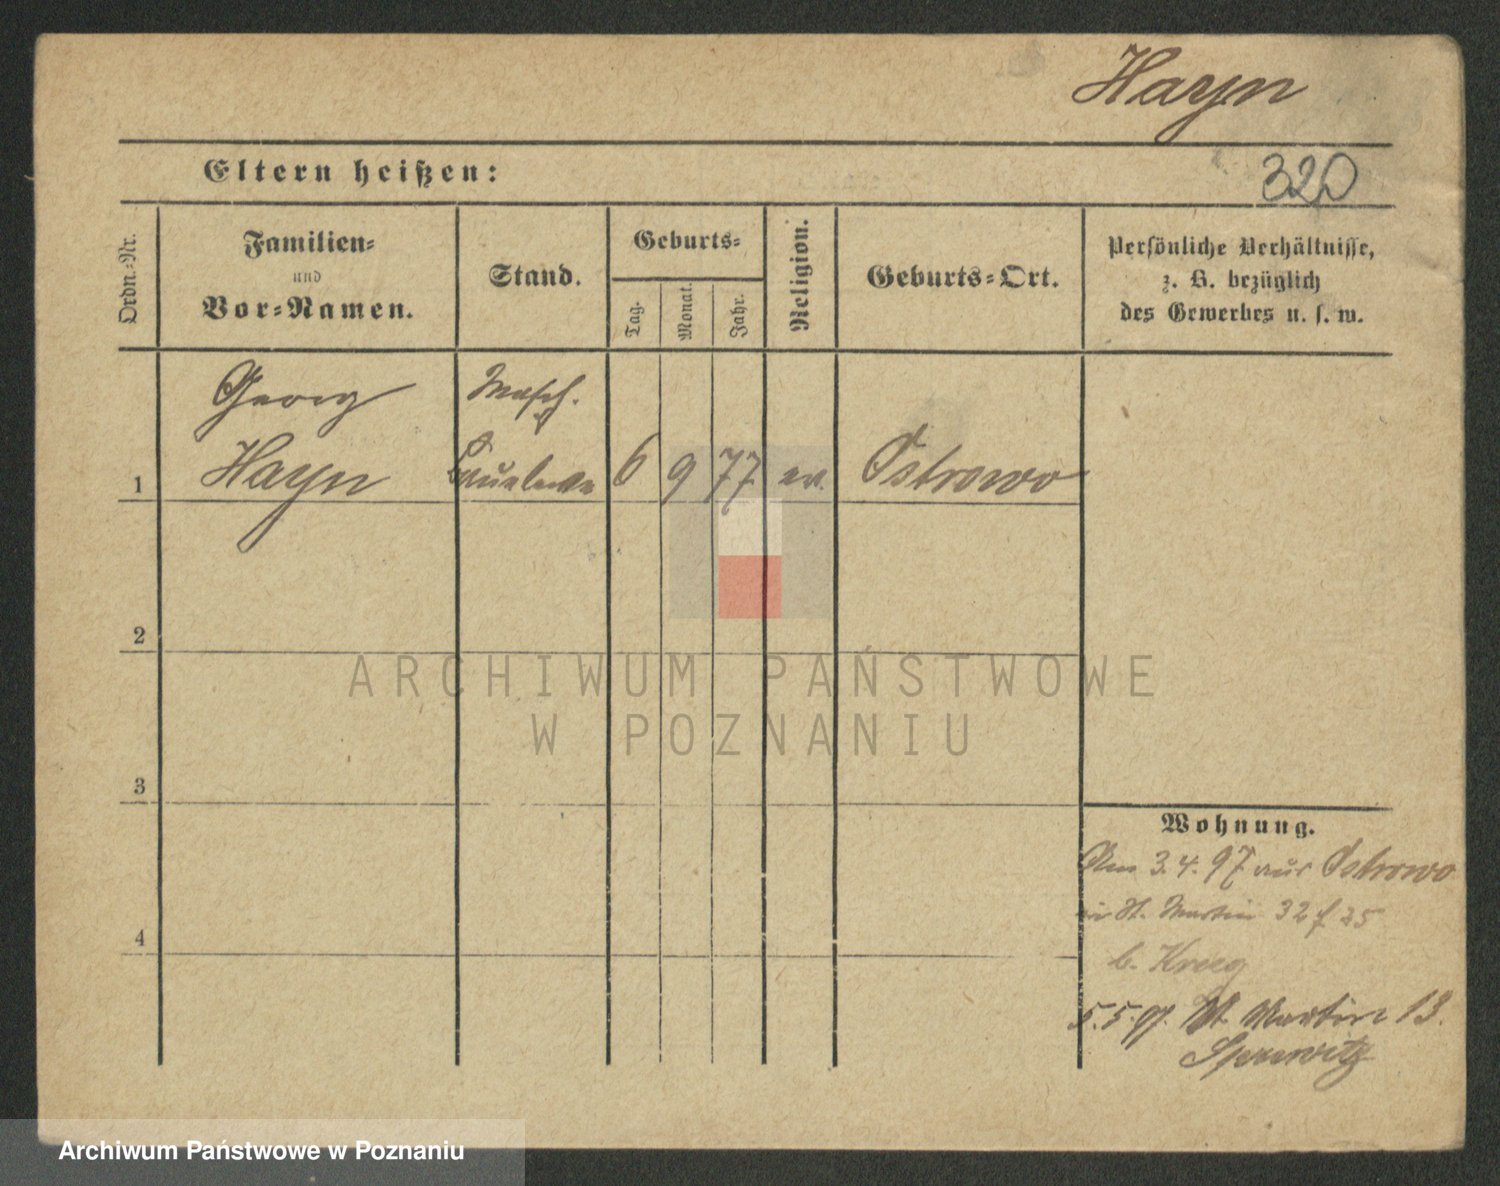 Hayn
Eltern heißen:
320
Ordn.-Nr.
Familien-
und
Vor-Namen.
Stand.
Geburts-
Tag.
Monat.
Jahr.
Religion.
Geburts-Ort.
Persönliche Verhältnisse,
z. B. bezüglich
des Gewerbes u. s. w.
Georg
Masch.
1 Hayn 6 9 77 ev. Ostrowo
2
ARCHIWUM PAŃSTWOWE
W POZNANIU
3
Wohnung.
3.4.97 aus Ostrowo
St. Martin 32
4
b.
5.5.97. St. Martin 13.
Archiwum Państwowe w Poznaniu